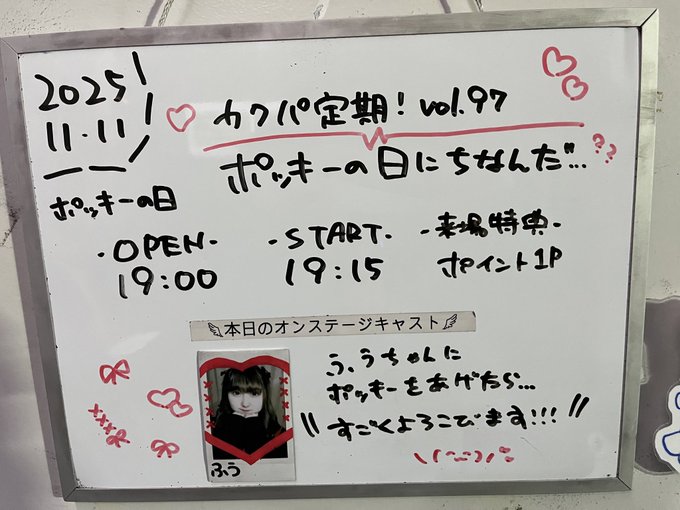 2025
11.11
ポッキーの日
カクパ定期! vol.97
ポッキーの日にちなんだ...??
・OPEN・
19:00
・START・
19:15
-来場特典-
ポイント1P
本日のオンステージキャスト
ふぅ
ふぅちゃんに
ポッキーをあげたら...
"すごくよろこびます!!!"